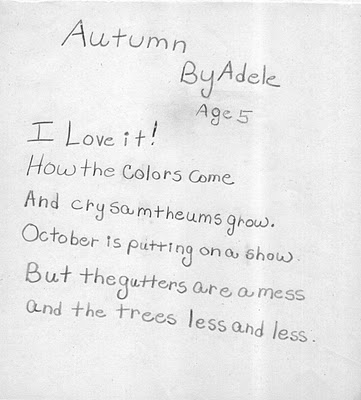 Autumn
By Adele
Age 5
I Love it!
How the Colors Come
And crysamtheums grow.
October is putting on a show.
But the gutters are a mess
and the trees less and less.